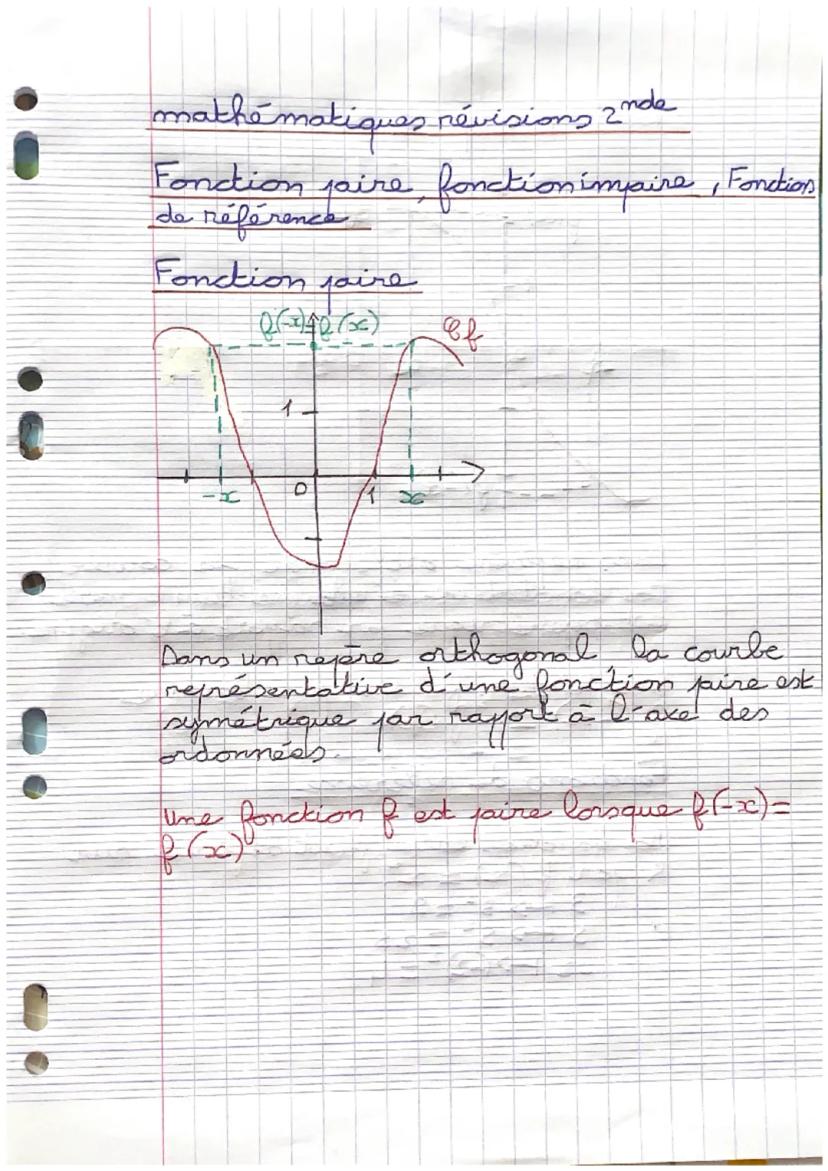 mathématiques révisions 2nde
Fonction paire, fonction impaire, Fonctions
de référence
Fonction paire
f(-x)=f(x)
Cf
1
-x 0 1 x
Dans un repère orthogonal, la courbe
représentative d'une fonction paire est
symétrique par rapport à l'axe des
ordonnées.
Une fonction f est paire lorsque f(-x)=
f(x).